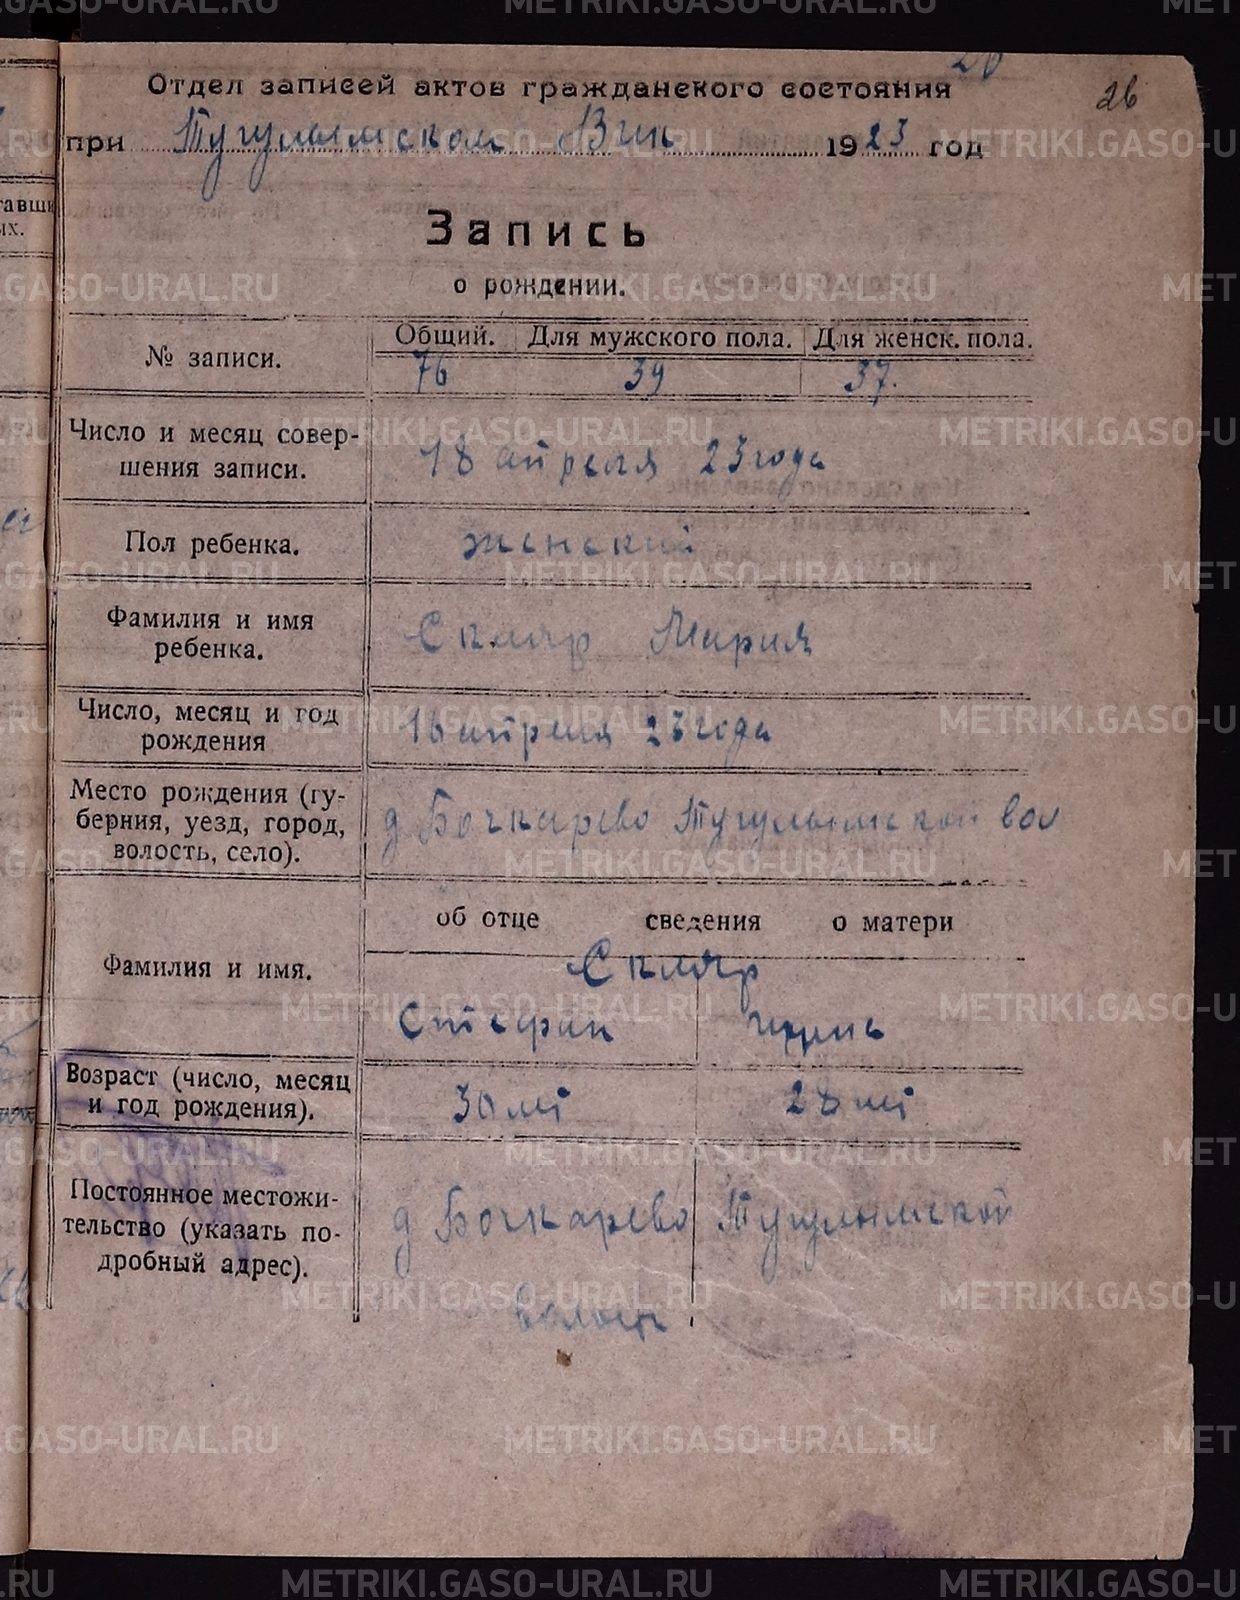 Отдел записей актов гражданского состояния
26
при Тугулымском Вик 1923 год
Запись
о рождении.
№ записи.
Общий. Для мужского пола. Для женск. пола.
76 39 37.
Число и месяц совер-
шения записи.
18 апреля 23 года
Пол ребенка.
женский
Фамилия и имя
ребенка.
Скляр Мария
Число, месяц и год
рождения
16 апреля 23 года
Место рождения (гу-
берния, уезд, город,
волость, село).
д Бочкарево Тугулымской вол
об отце сведения о матери
Фамилия и имя.
Скляр
Стефан
Возраст (число, месяц
и год рождения).
30 лет 28 лет
Постоянное местожи-
тельство (указать по-
дробный адрес).
д Бочкарево Тугулымской
METRIKI.GASO-URAL.RU